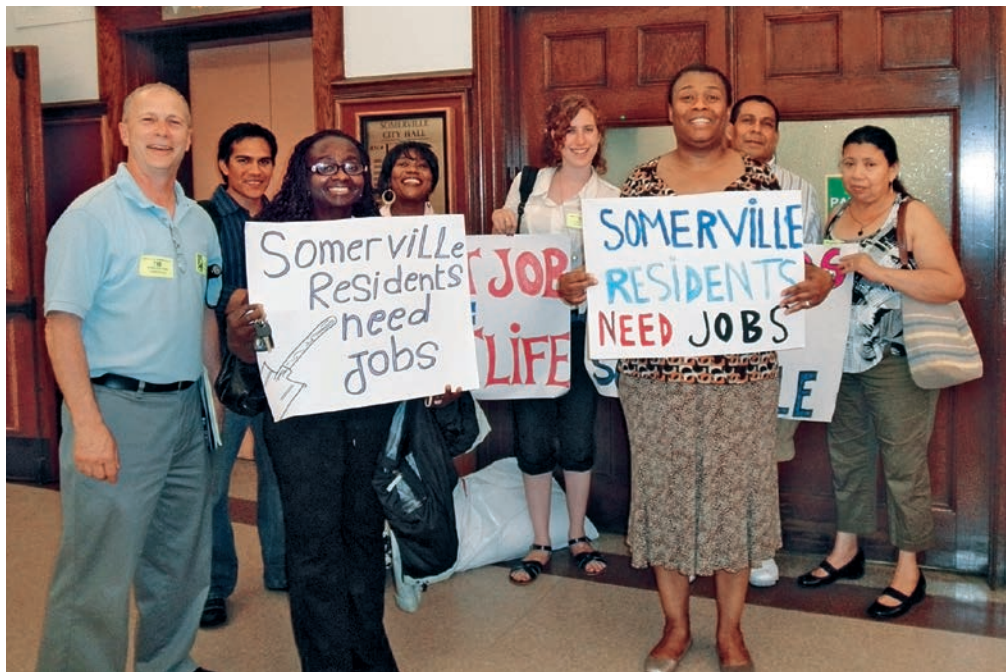 SOMERVILLE
CITY HALL
Somerville
Residents
need
jobs
JOB
LIFE
SOMERVILLE
RESIDENTS
NEED JOBS